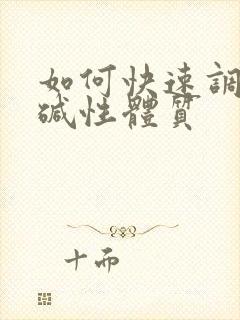 如何快速調
碱性體質
十而